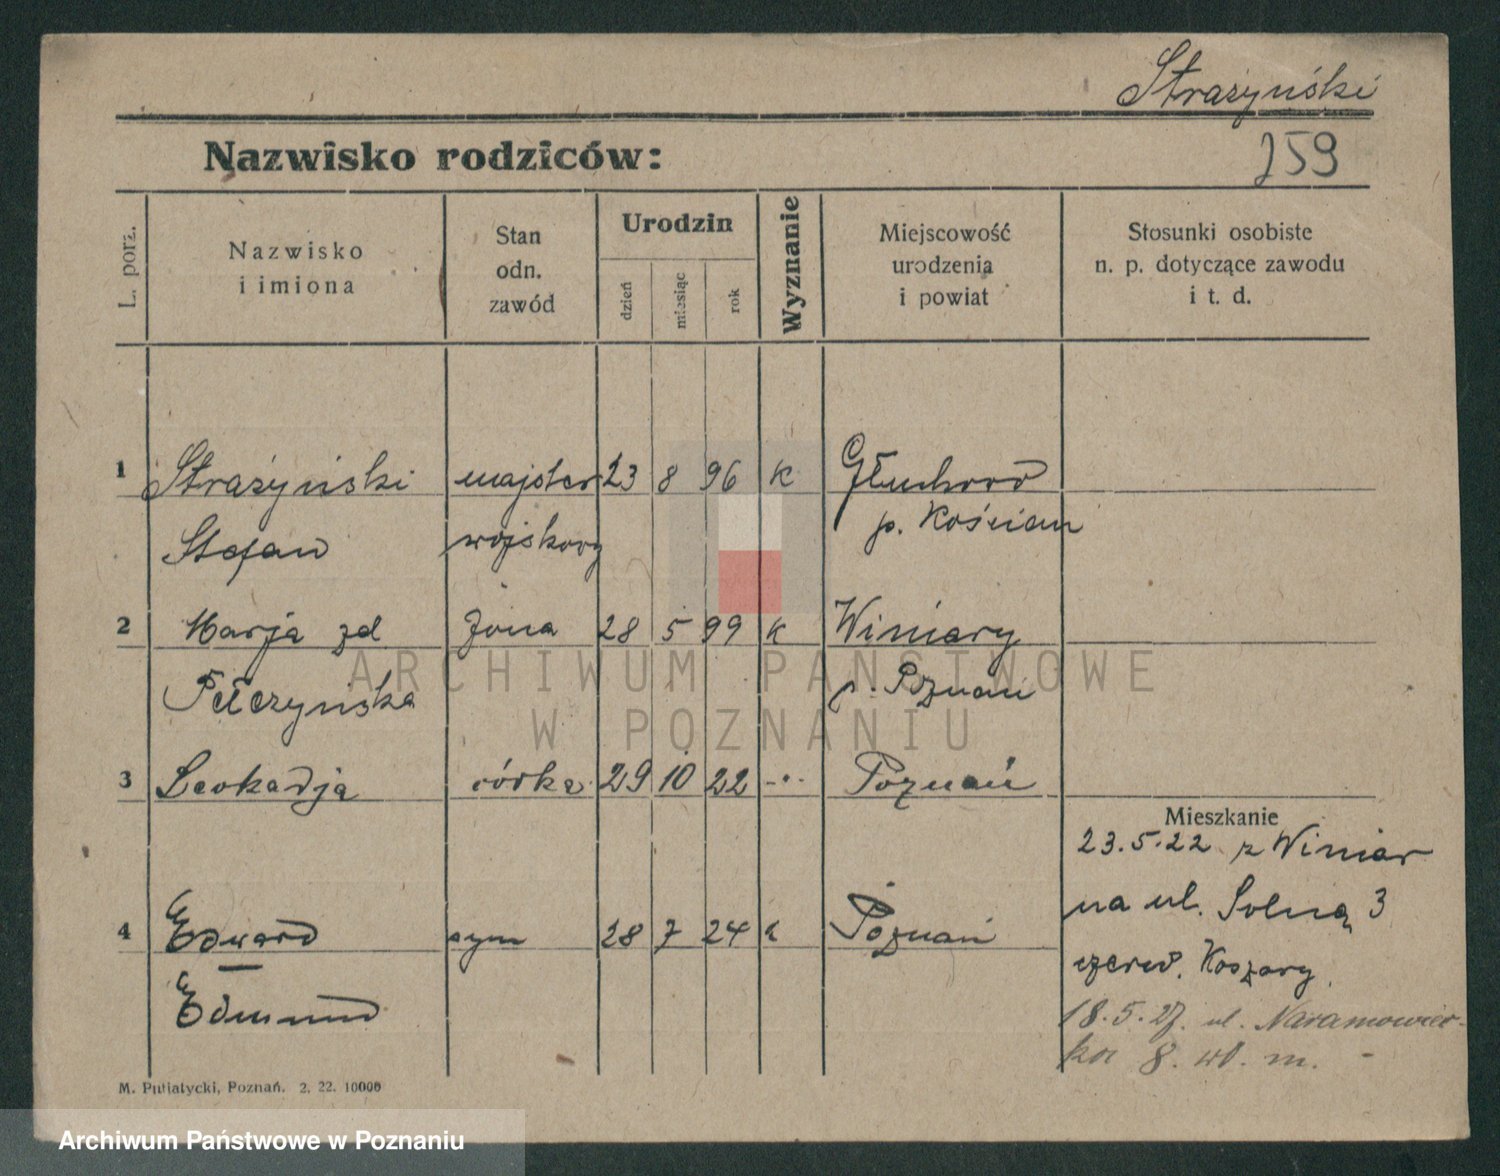 Strażyński
759
Nazwisko rodziców:
L. porz.
Nazwisko
i imiona
Stan
odn.
zawód
Urodzin
dzień
miesiąc
rok
Wyznanie
Miejscowość
urodzenia
i powiat
Stosunki osobiste
n. p. dotyczące zawodu
i t. d.
1 Strażyński majster 23 8 96 K Głuchowo
Stefan wojskowy p. Kościan
2 Marja zd żona 28 5 99 K Winiary
Pełczyńska p. Poznań
3 Leokadja córka 29 10 22 -"- Poznań
Mieszkanie
23.5.22 z Winiar
na ul. Solną 3
4 Edward syn 28 7 24 k Poznań
czerw. Koszary
Edmund
18.5.27. ul. Naramowic-
ka 8. wł. m. -
M. Putiatycki, Poznań. 2. 22. 10000
ARCHIWUM PAŃSTWOWE
W POZNANIU
Archiwum Państwowe w Poznaniu